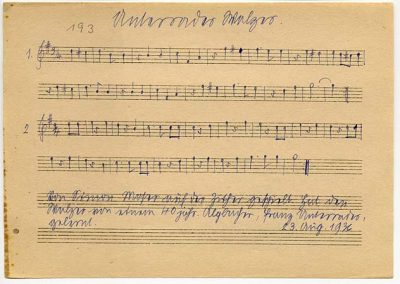 193
Unterrader Walzer.
1.
2
Von Simon Moser auf der Zither gespielt. Hat den
Walzer von einem 40 jähr. Franz Unterrader,
gelernt.
23. Aug. 1936